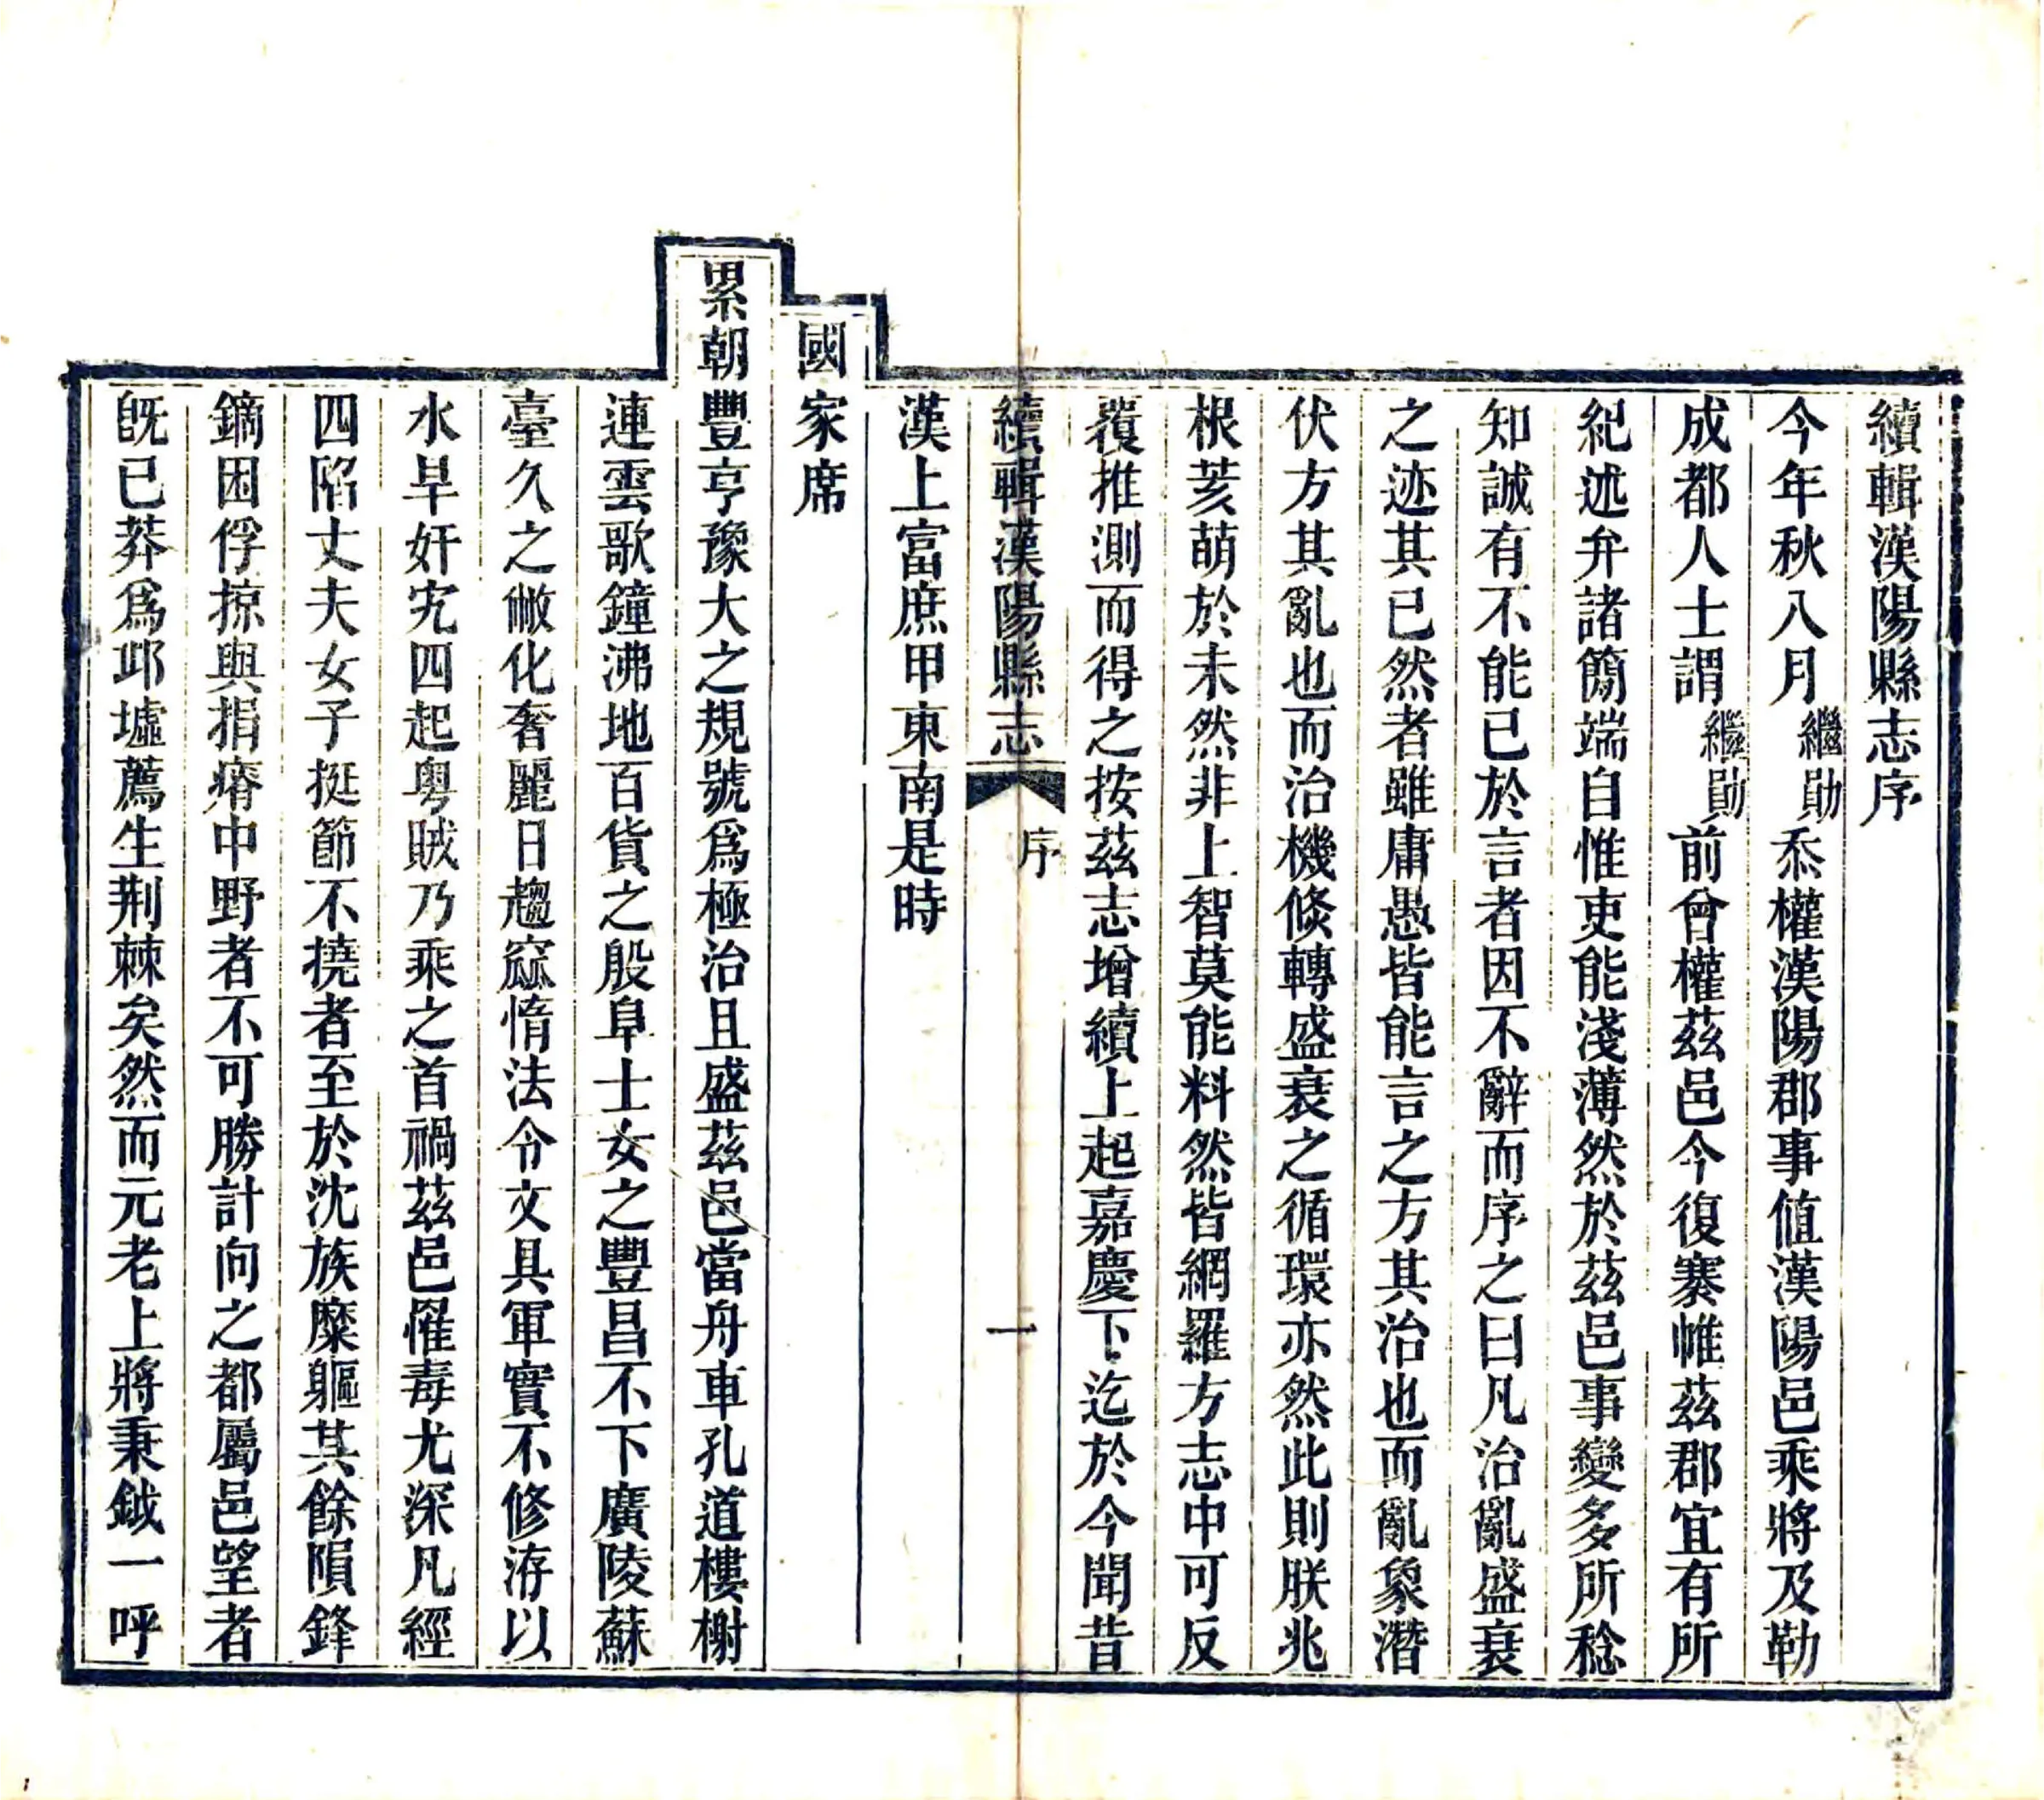 續輯漢陽縣志序
今年秋八月繼勛忝權漢陽郡事值漢陽邑乘將及勒
成都人士謂繼勛前曾權茲邑今復褰帷茲郡宜有所
紀述弁諸簡端自惟吏能淺薄然於茲邑事變多所稔
知誠有不能已於言者因不辭而序之曰凡治亂盛衰
之迹其已然者雖庸愚皆能言之方其治也而亂象潛
伏方其亂也而治機倐轉盛衰之循環亦然此則朕兆
根荄萌於未然非上智莫能料然皆網羅方志中可反
覆推測而得之按茲志增續上起嘉慶下迄於今聞昔
續輯漢陽縣志 序 一
漢上富庶甲東南是時
國家席
累朝豐亨豫大之規號爲極治且盛茲邑當舟車孔道樓榭
連雲歌鐘沸地百貨之殷阜士女之豐昌不下廣陵蘇
臺久之敝化奢麗日趨窳惰法令文具軍實不修洊以
水旱奸宄四起粵賊乃乘之首禍茲邑罹毒尤深凡經
四陷丈夫女子挺節不撓者至於沈族糜軀其餘隕鋒
鏑困俘掠與捐瘠中野者不可勝計向之都屬邑望者
旣已莽爲邱墟薦生荆棘矣然而元老上將秉鉞一呼